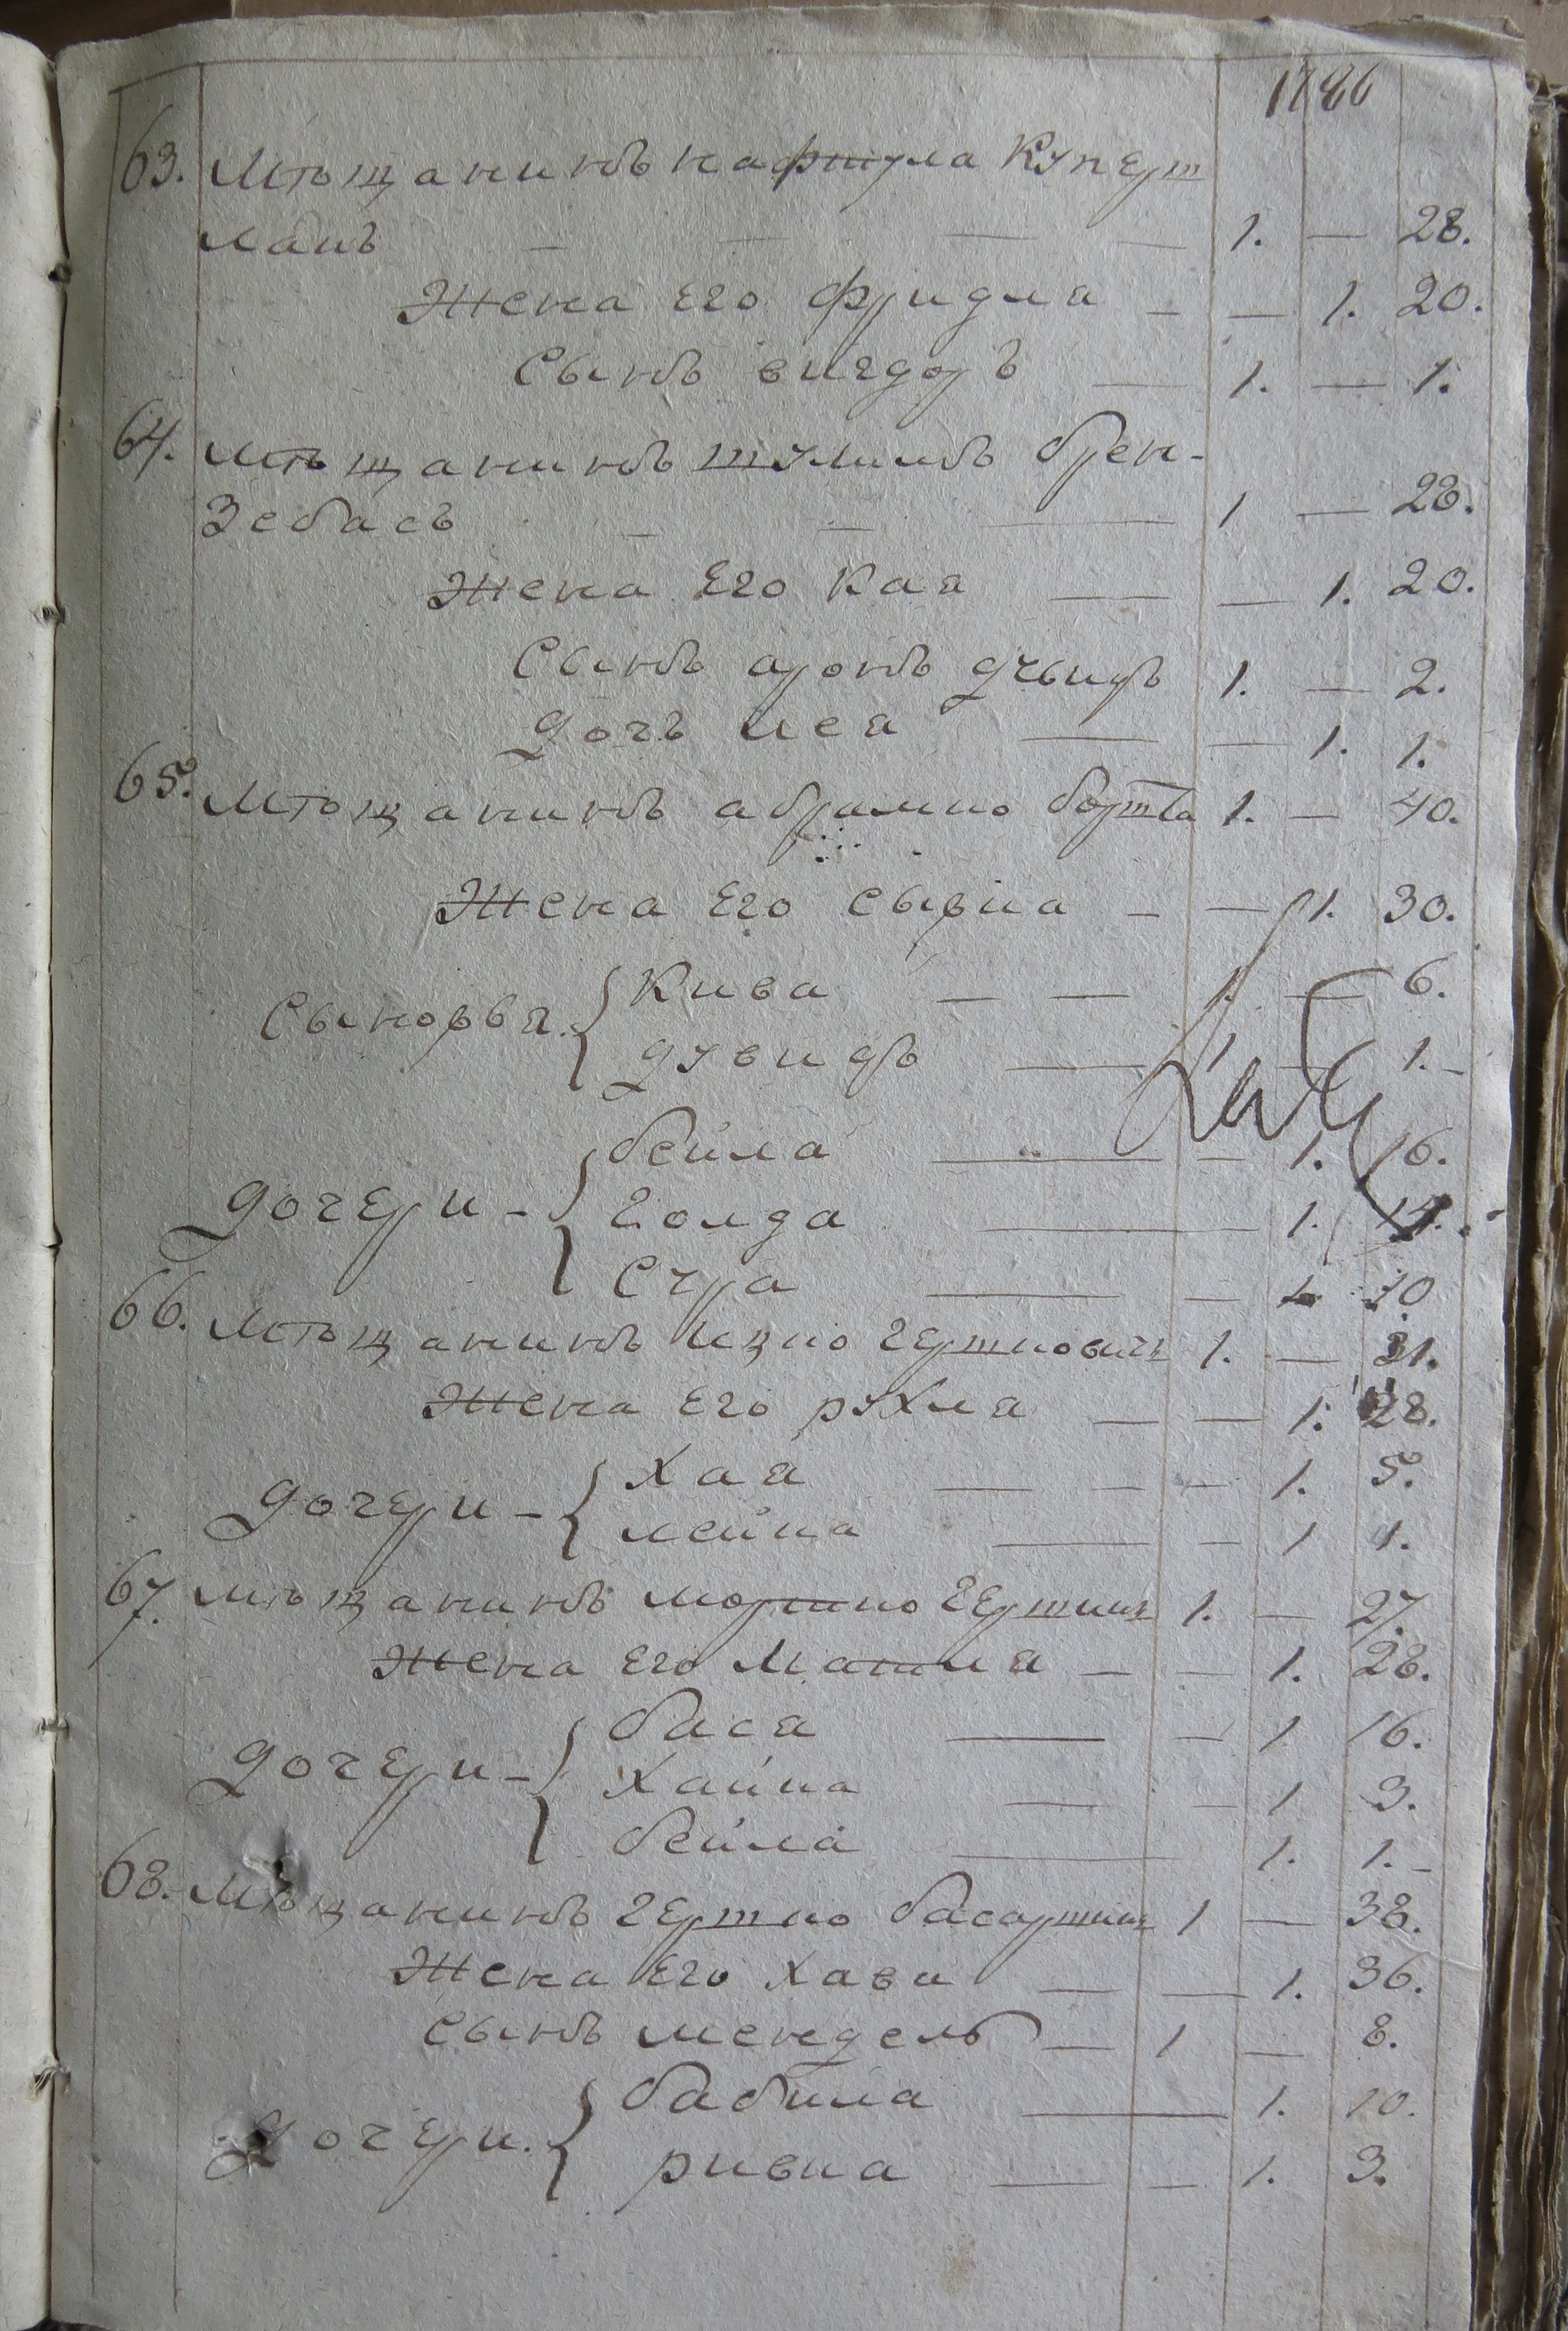 1786
63. Мѣщанинъ нафтула Куперш
ланъ — — — — 1. — 28.
Жена Его фридла — — 1. 20.
Сынъ вигдоръ — 1. — 1.
64. Мѣщанинъ шулимъ брен-
Зебасъ — — — 1 — 28.
Жена Его Кая — — 1. 20.
Сынъ аронъ 1. — 2.
дочъ лея — — 1. 1.
65. Мѣщанинъ абрамко 1. — 40.
Жена Его сывка — — 1. 30.
Сыновья { Кива — — 1. — 6.
дувидъ — 1 — 1.-
бейла — — 1. 16.
дочери - { Голда — 1. 14.
Сура — — 1. 10
66. Мѣщанинъ Ицко Гершковичъ 1. — 31.
Жена Его рухля — — 1. 28.
Хая — — — 1. 5.
дочери - { лейка — — 1 1.
67. Мѣщанинъ мошко Гершина 1. — 27.
Жена Его Машля — — 1. 28.
бася — — 1 16.
дочери - { Хайка — — 1 3.
бейла — 1. 1.-
68. Мѣщанинъ Гершко 1 — 38.
Жена Его Хава — — 1. 36.
Сынъ мендель — 1 — 8.
бабила — 1. 10.
дочери. { ривка — — 1. 3.